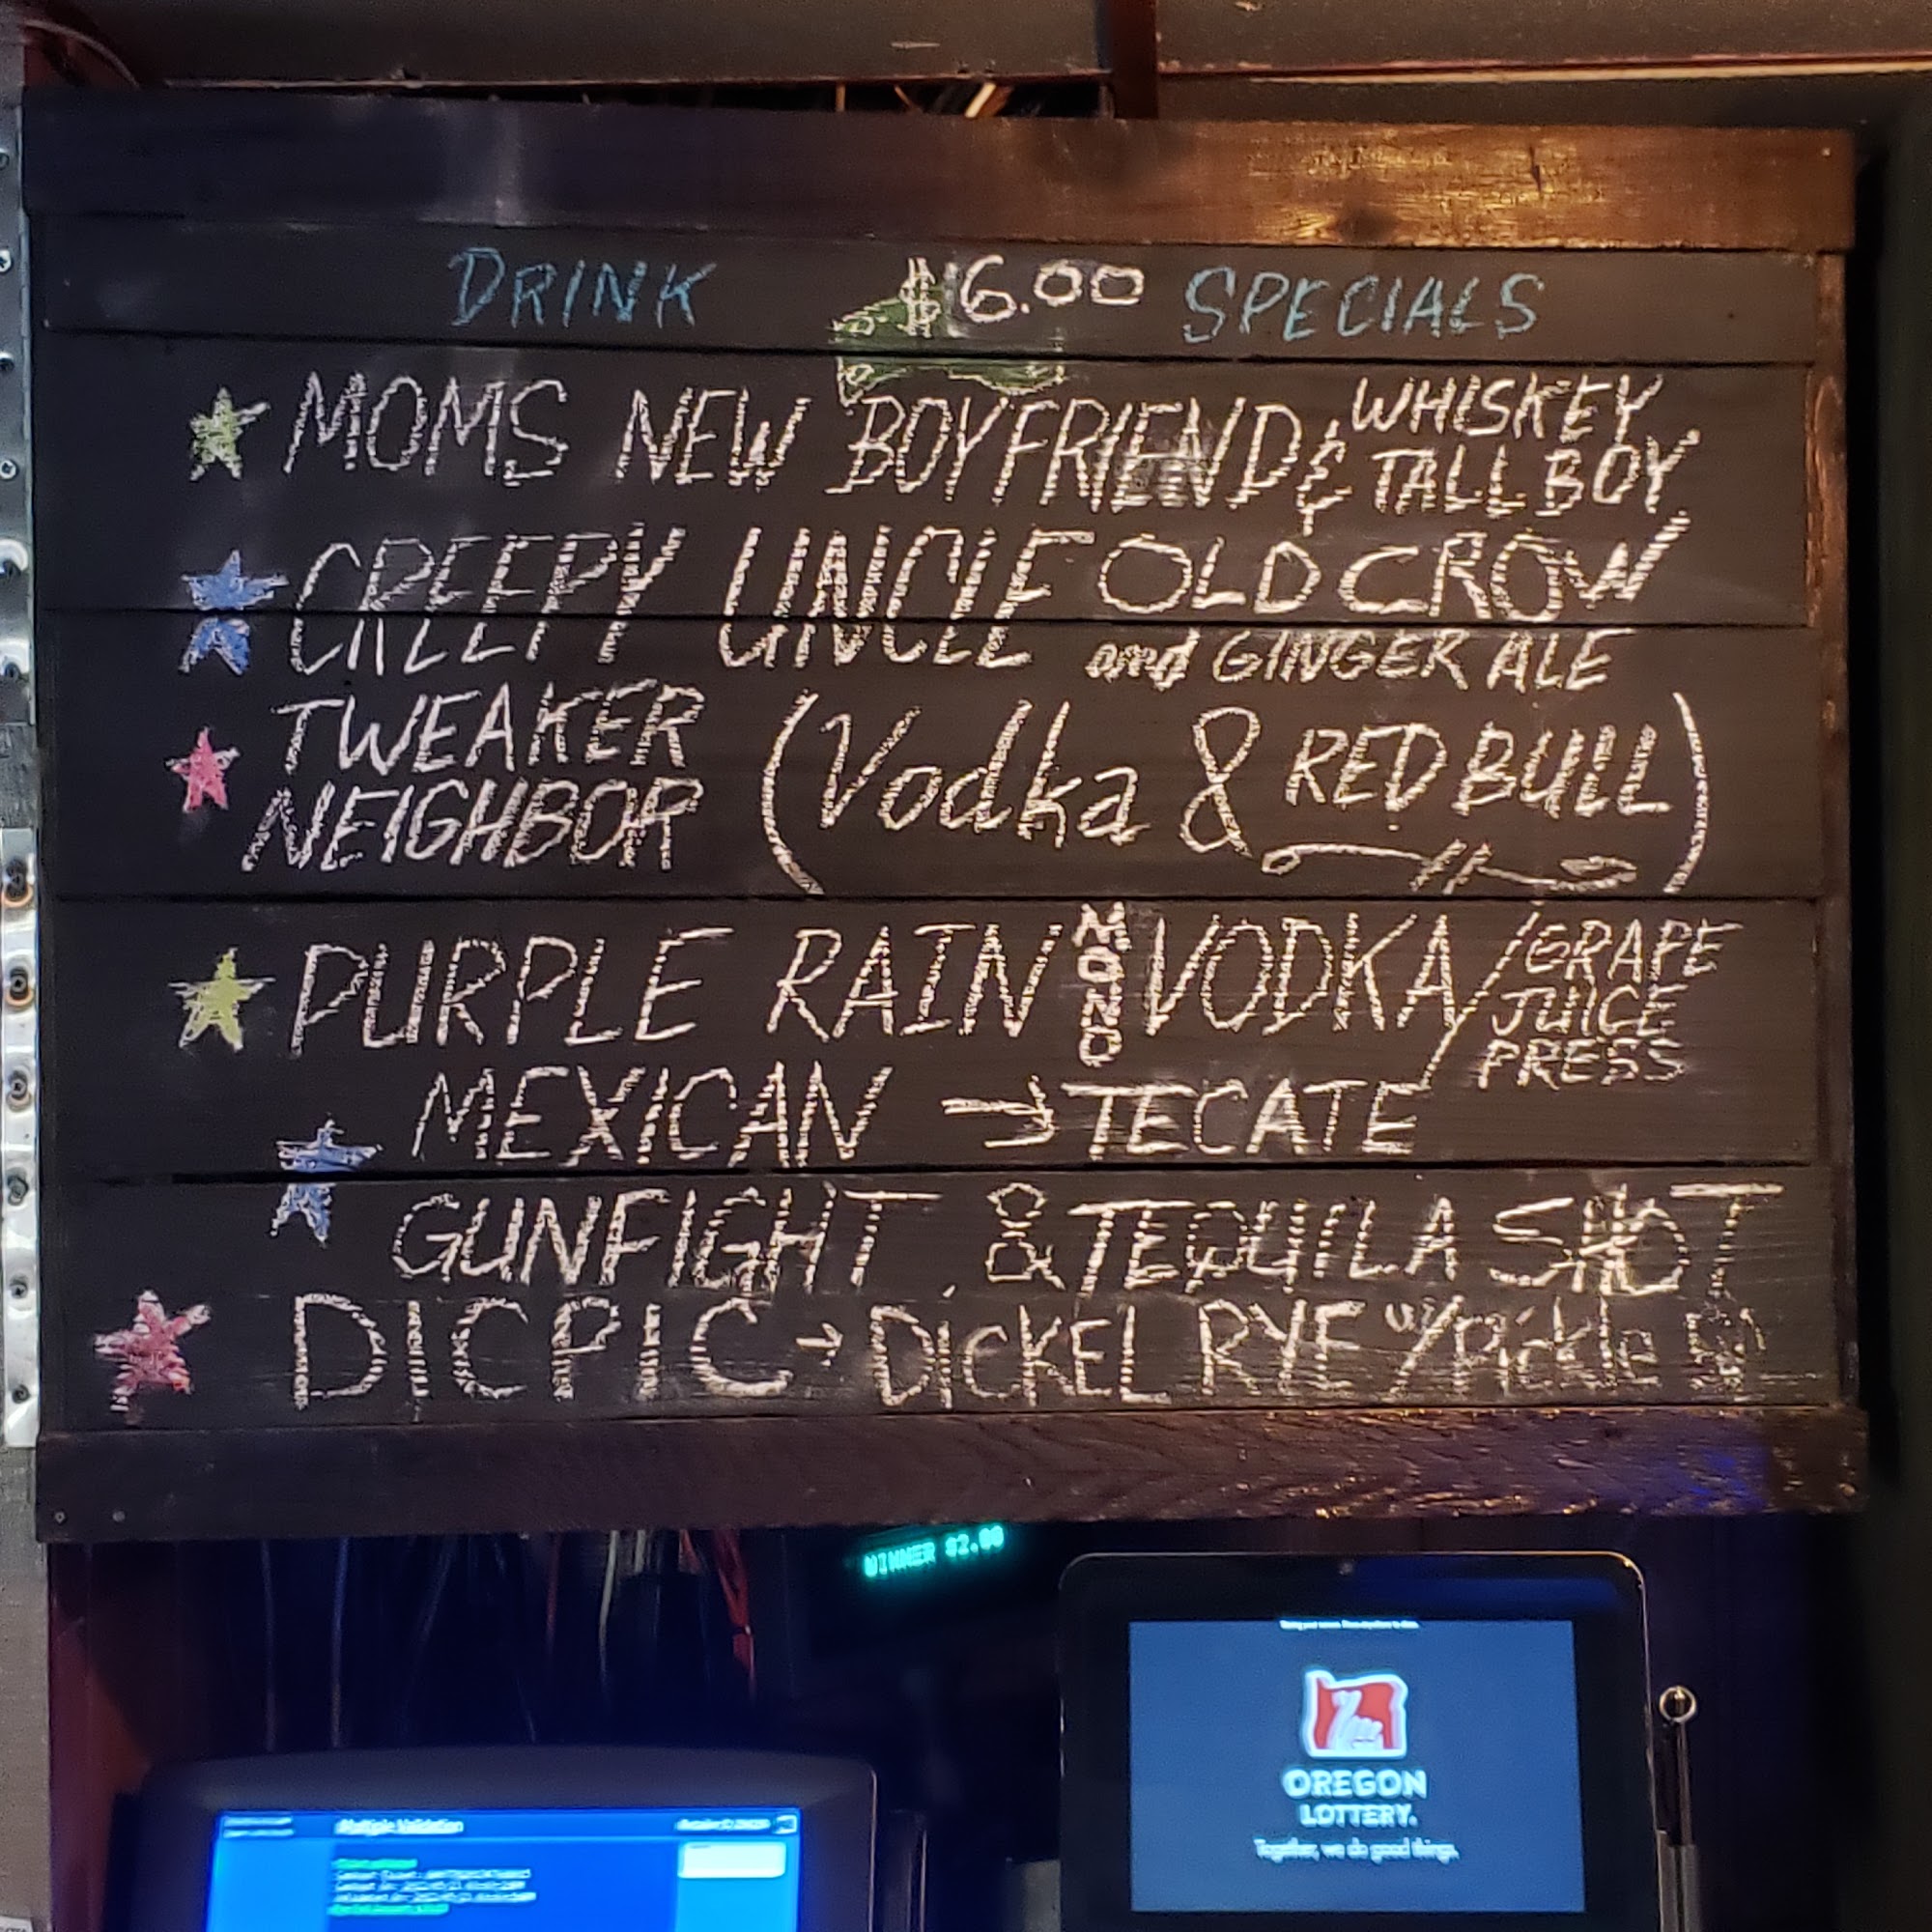 DRINK $6.00 SPECIALS
MOMS NEW BOYFRIEND & WHISKEY
TALL BOY
CREEPY UNCLE OLD CROW
and GINGER ALE
TWEAKER
NEIGHBOR (Vodka & RED BULL)
PURPLE RAIN MONO VODKA / GRAPE
JUICE
PRESS
MEXICAN → TECATE
GUNFIGHT & TEQUILA SHOT
DIC PIC → DICKEL RYE w/Pickle
WINNER $2.00
OREGON
LOTTERY.
Together, we do good things.
Multiple Validation